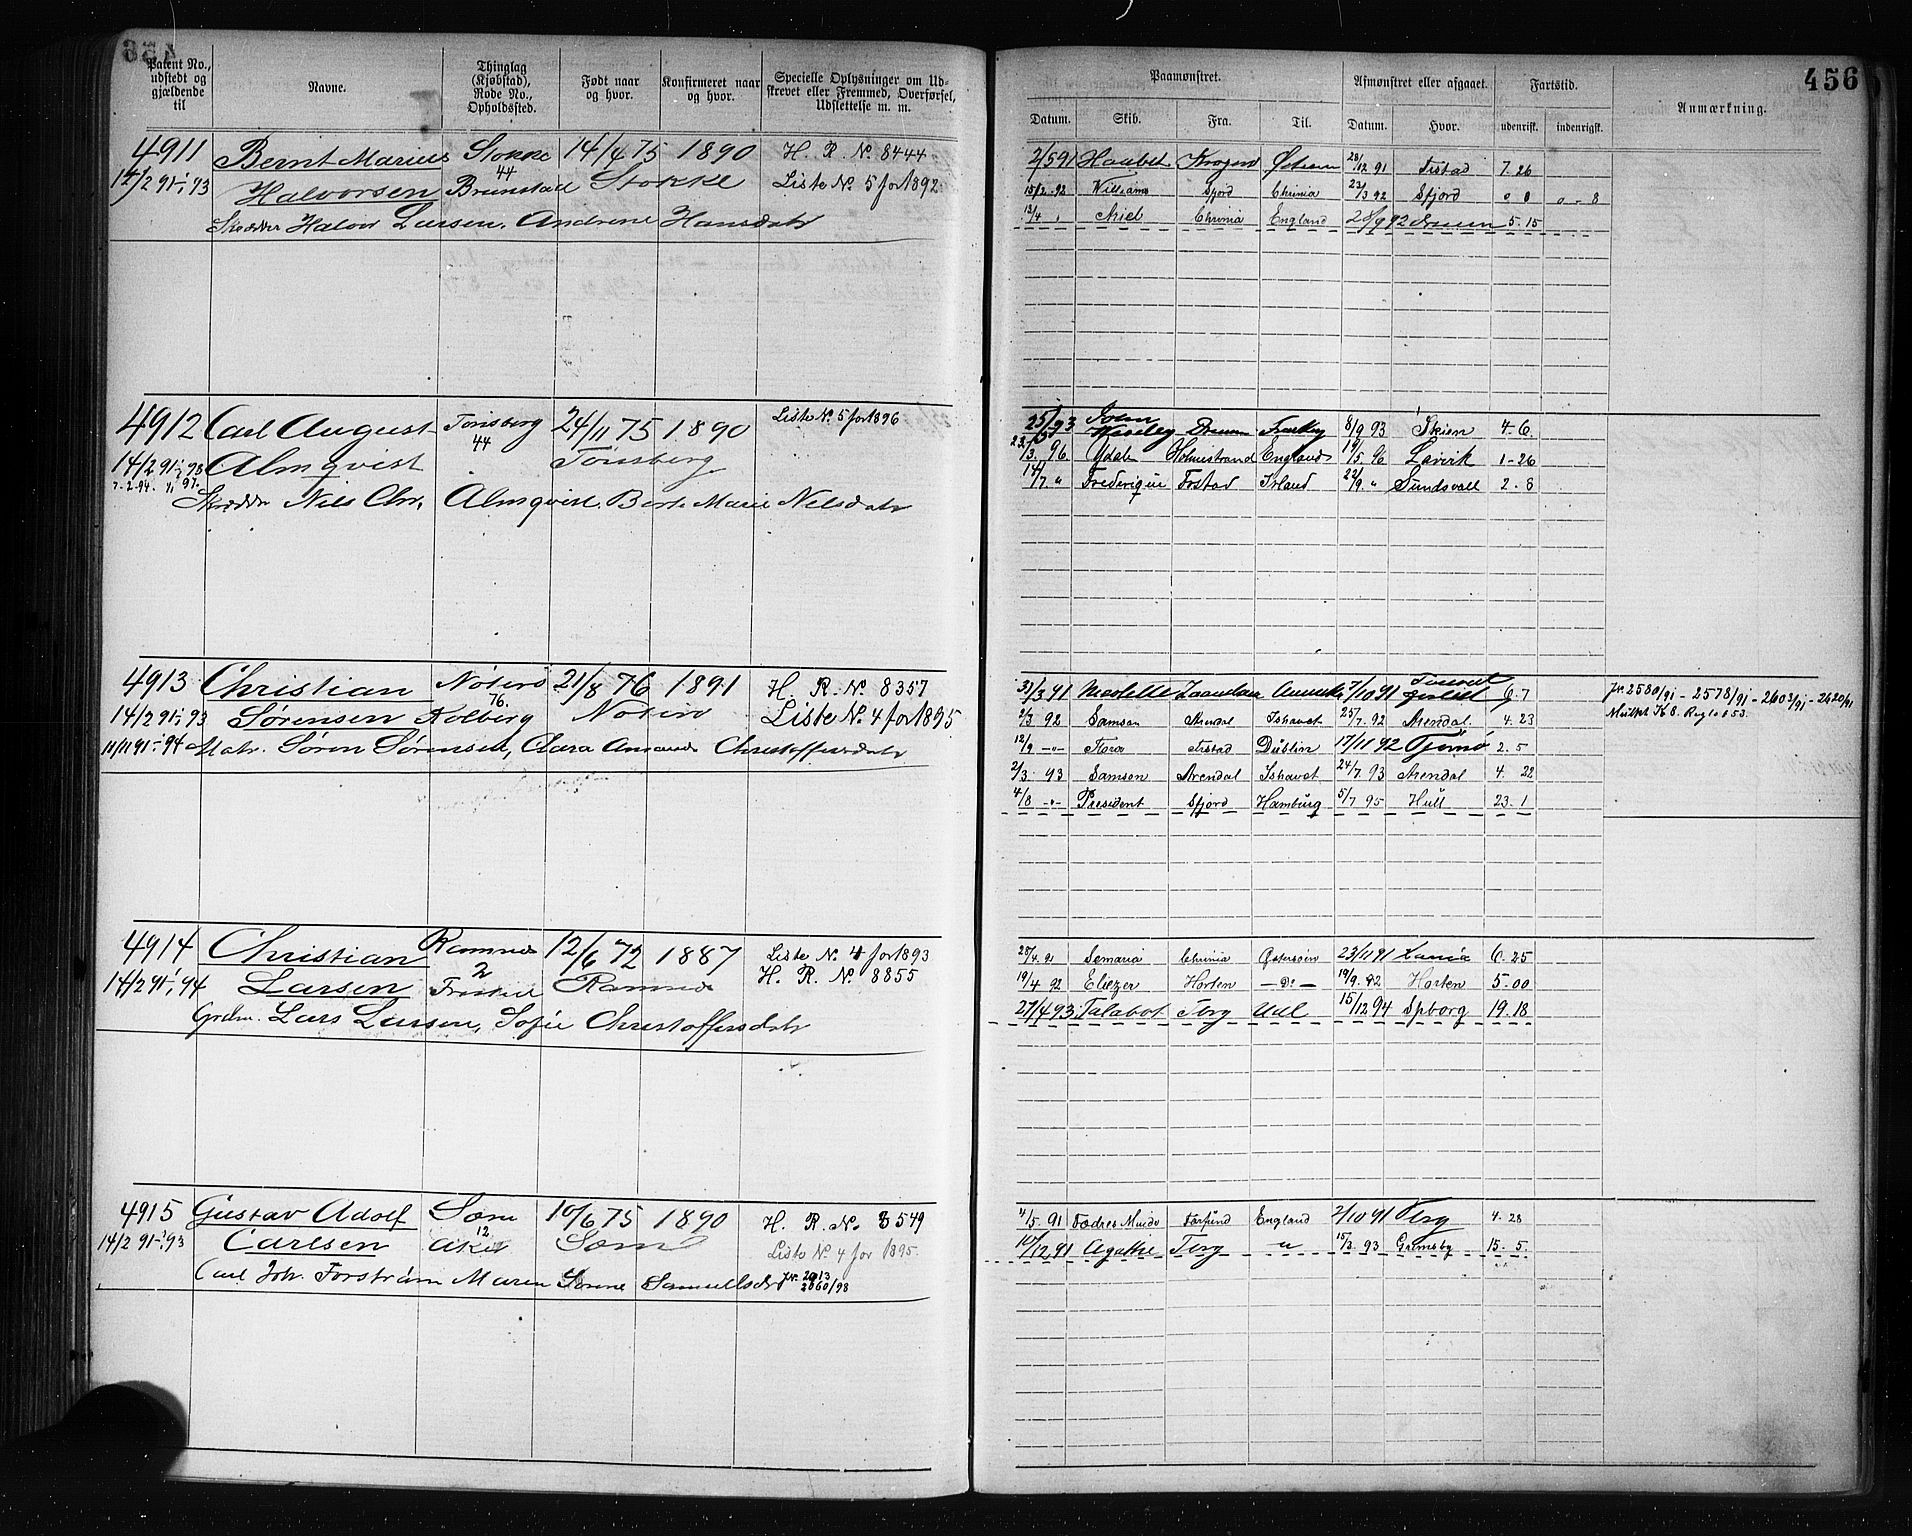 456
Patent No., udstedt og gjældende til
Navne.
Thinglag (Kjøbstad), Rode No., Opholdssted.
Født naar og hvor.
Konfirmeret naar og hvor.
Specielle Oplysninger om Udskrevet eller Fremmed, Overførsel, Udslettelse m. m.
Paamønstret.
Afmønstret eller afgaaet.
Fartstid.
Anmærkning.
Datum. Skib. Fra. Til. Datum. Hvor. udenrigsk. indenrigsk.
4911 Bernt Marius Stokke 14/4 75 1890 H. R. No. 8444
14/2 91-1/1 93 Halvorsen 44 Brunstad Stokke Liste No. 5 for 1892
Skrædder Halvor Larsen, Andrine Hansdatr
2/5 91 Haabet 28/12 91 Frstad 7. 26
15/2. 92 Williams Sfjord Chrinia 23/3 92 Sfjord 0 8 0 - 8
12/4 " Ariel Chrinia England 28/9 92 Drmen 5. 15
4912 Carl August Tønsberg 24/11 75 1890 Liste No. 5 for 1896
14/2 91-1/1 93 Almqvist 44 Tønsberg
7-2-94. 1/1 97.
Skrædder Nils Chr. Almqvist, Berte Marie Nilsdatr
93 Drmen 8/9 93 Skien 4-6.
23/3. 96. Ydale Holmestrand England 19/5. 96 Larvik 1-26
14/7. " Frederique Frstad Irland 22/9. " Sundsvall 2. 8
4913 Christian Nøterø 21/8 76 1891 H. R. No. 8357
14/2 91-1/1 93 Sørensen 76. Kolberg Nøterø Liste No. 4 for 1895
11/11 91-1/1 94 Matr. Søren Sørensen, Clara Amanda Christoffersdatr
31/3 91 Nicolette Zaandam 7/10 91 6. 7
2/3 92 Samson Arendal Ishavet 25/7. 92 Arendal. 4. 23
12/9 -"- Flora Frstad Dublin 17/11 92 Tjømø 2. 5
2/3 93 Samson Arendal Ishavet 24/7. 93 Arendal 4. 22
4/8 -"- President Sfjord Hamburg 5/7 95 Hull 23. 1
Jr. 2580/91 - 2578/91 - 2603/91 - 2620/91
4914 Christian Ramnes 12/6 72 1887 Liste No. 4 for 1893
14/2 91-1/1 94 Larsen 2 Ramnes H. R. No. 8855
Grdm. Lars Larsen, Sofie Christoffersdatr
28/4. 91 Semaria Chrinia Østersøen 23/11 91 6. 25
19/4 92 Eliezer Horten - Do - 19/9. 92 Horten 5. 00
27/4 93 Talabot Tbrg Udl 15/12 94 Spborg 19. 18
4915 Gustav Adolf Sæm 10/6 75 1890 H. R. No. 8549
14/2 91-1/1 93 Carlsen 12 Aker Sæm Liste No. 4 for 1895.
Carl Joh. Forstrøm Maren Sørine Samuelsdr Jr. 2013 2060/98
4/5. 91 Fædres Minde Farsund England 2/10 91 Tbrg 4. 28
10/12 91 Agathe Tbrg " 15/3. 93 Grimsby 15. 5.